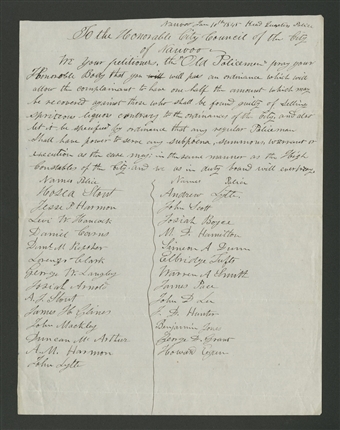 Nauvoo Jan 10th 1845
To the Honorable City Council of the City
of Nauvoo
We your petitioners, the "Old Policemen" pray your
Honorable Body that you will pass an ordinance which will
allow the complainant to have one half the amount which may
be recovered against those who shall be found guilty of selling
spiritous liquors contrary to the ordinances of the city, and also
let it be specified by ordinance that any regular Policeman
shall have power to serve any subpoena, summons warrant or
execution as the case may be in the same manner as the High
Constable of the City and we as in duty bound will ever pray
Names Police
Hosea Stout
Jesse P Harmon
Levi W Hancock
Daniel Carns
Danl M Repsher
Lorenzo Clark
George W Langley
Josiah Arnold
A. J. Stout
James H Glines
John Mackley
Duncan McArthur
A. M. Harmon
John Lytle
Names Police
Andrew Lytle
John Scott
Josiah Boyce
M. F. Hamilton
Simeon A Dunn
Elbridge Tufts
Warren A Smith
James Pace
John D Lee
J. D. Hunter
Benjamin Jones
George D Grant
Howard Egan